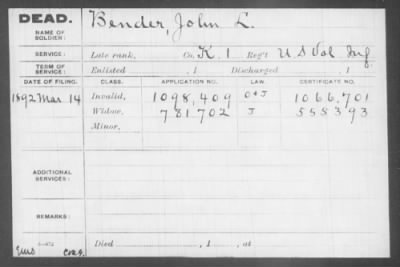 DEAD.
NAME OF SOLDIER: Bender, John L.
SERVICE: Late rank, Co. K. 1 Reg't U S Vol Inf
TERM OF SERVICE: Enlisted , 1 Discharged , 1
DATE OF FILING. CLASS. APPLICATION NO. LAW. CERTIFICATE NO.
1892 Mar 14 Invalid, 1098,409 O & J 1066,701
Widow, 781702 J 555393
Minor,
ADDITIONAL SERVICES:
REMARKS:
Died , 1 , at